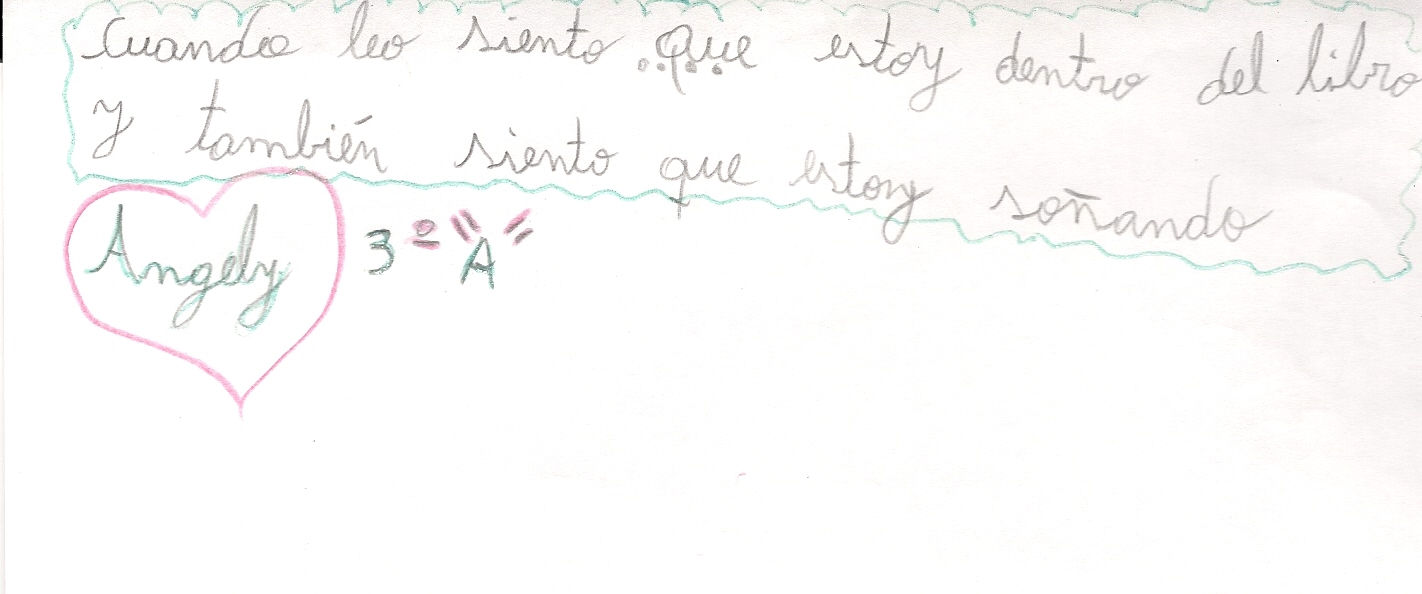 Cuando leo siento que estoy dentro del libro
y también siento que estoy soñando
Angely 3º "A"